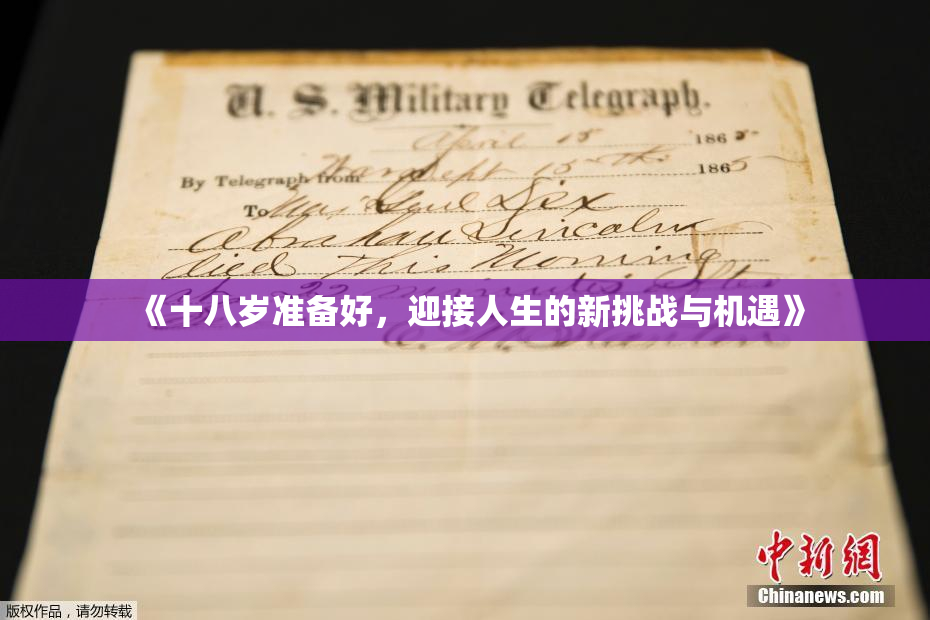 U. S. Military Telegraph.
April 15 1865
By Telegraph from War Dept 15th 1865
To Maj Genl Dix
Abraham Lincoln
died this Morning
22 minutes after
《十八岁准备好，迎接人生的新挑战与机遇》
E. M. Stanton
中新网
Chinanews.com
版权作品，请勿转载